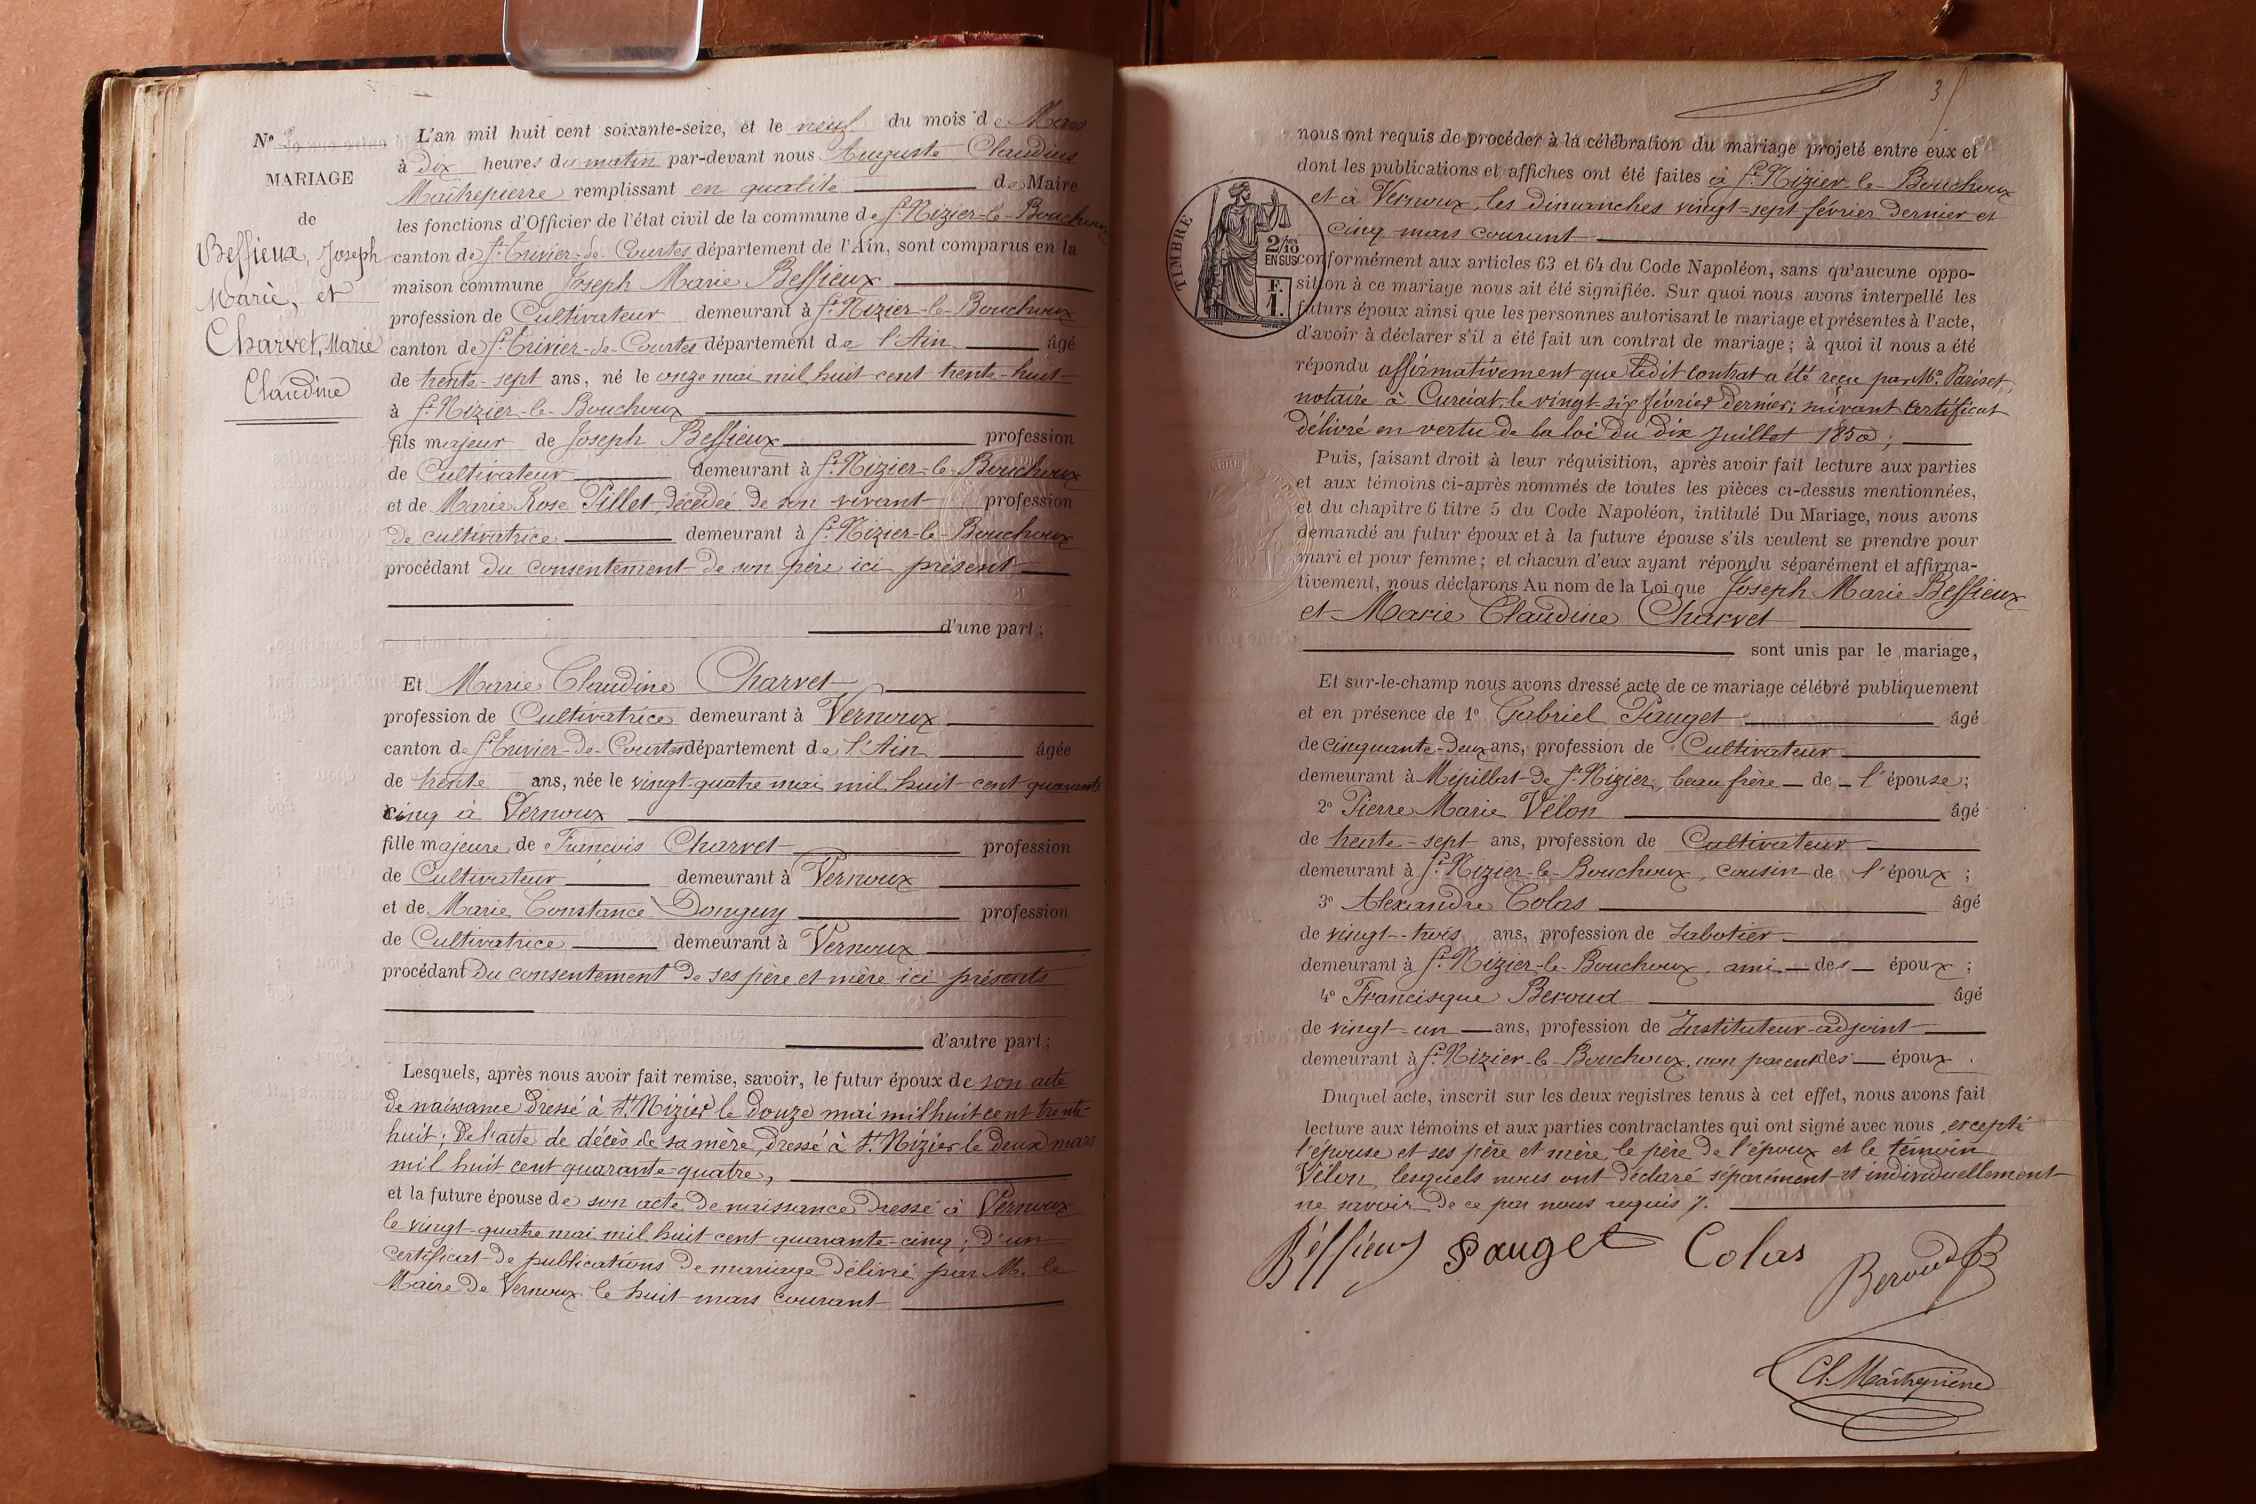 Nº
MARIAGE
de
Beffieux, Joseph
Marie, et
Charvet, Marie
Claudine
L'an mil huit cent soixante-seize, et le neuf du mois de Mars
à dix heures du matin par-devant nous Auguste Claudius
Maîtrepierre remplissant en qualité de Maire
les fonctions d'Officier de l'état civil de la commune de St Nizier-le-Bouchoux
canton de St Trivier-de-Courtes département de l'Ain, sont comparus en la
maison commune Joseph Marie Beffieux
profession de Cultivateur demeurant à St Nizier-le-Bouchoux
canton de St Trivier-de-Courtes département de l'Ain âgé
de trente-sept ans, né le onze mai mil huit cent trente-huit
à St Nizier-le-Bouchoux
fils majeur de Joseph Beffieux profession
de Cultivateur demeurant à St Nizier-le-Bouchoux
et de Marie Rose Pillet, décédée de son vivant profession
de cultivatrice demeurant à St Nizier-le-Bouchoux
procédant du consentement de son père ici présent
d'une part;
Et Marie Claudine Charvet
profession de Cultivatrice demeurant à Vernoux
canton de St Trivier-de-Courtes département de l'Ain âgée
de trente ans, née le vingt-quatre mai mil huit cent quarante
cinq à Vernoux
fille majeure de François Charvet profession
de Cultivateur demeurant à Vernoux
et de Marie Constance Donguy profession
de Cultivatrice demeurant à Vernoux
procédant du consentement de ses père et mère ici présents
d'autre part;
Lesquels, après nous avoir fait remise, savoir, le futur époux de son acte
de naissance dressé à St Nizier le douze mai mil huit cent trente-
huit; de l'acte de décès de sa mère, dressé à St Nizier le deux mars
mil huit cent quarante-quatre,
et la future épouse de son acte de naissance dressé à Vernoux
le vingt-quatre mai mil huit cent quarante-cinq; d'un
certificat de publications de mariage délivré par M. le
Maire de Vernoux le huit mars courant
3
nous ont requis de procéder à la célébration du mariage projeté entre eux et
dont les publications et affiches ont été faites à St Nizier-le-Bouchoux
et à Vernoux, les dimanches vingt-sept février dernier et
cinq mars courant
TIMBRE
2/10
EN SUS
F.
1.
conformément aux articles 63 et 64 du Code Napoléon, sans qu'aucune oppo-
sition à ce mariage nous ait été signifiée. Sur quoi nous avons interpellé les
futurs époux ainsi que les personnes autorisant le mariage et présentes à l'acte,
d'avoir à déclarer s'il a été fait un contrat de mariage; à quoi il nous a été
répondu affirmativement que ledit contrat a été reçu par Me. Pariset,
notaire à Curciat, le vingt-six février dernier; suivant certificat
délivré en vertu de la loi du dix Juillet 1850;
Puis, faisant droit à leur réquisition, après avoir fait lecture aux parties
et aux témoins ci-après nommés de toutes les pièces ci-dessus mentionnées,
et du chapitre 6 titre 5 du Code Napoléon, intitulé Du Mariage, nous avons
demandé au futur époux et à la future épouse s'ils veulent se prendre pour
mari et pour femme; et chacun d'eux ayant répondu séparément et affirma-
tivement, nous déclarons Au nom de la Loi que Joseph Marie Beffieux
et Marie Claudine Charvet
sont unis par le mariage,
Et sur-le-champ nous avons dressé acte de ce mariage célébré publiquement
et en présence de 1º Gabriel Pauget âgé
de cinquante-deux ans, profession de Cultivateur
demeurant à Mépillat-de St Nizier, beau frère de l'épouse;
2º Pierre Marie Vélon âgé
de trente-sept ans, profession de Cultivateur
demeurant à St Nizier-le-Bouchoux, cousin de l'époux;
3º Alexandre Colas âgé
de vingt-trois ans, profession de Sabotier
demeurant à St Nizier-le-Bouchoux, ami des époux;
4º Francisque Beroud âgé
de vingt-un ans, profession de Instituteur-adjoint
demeurant à St Nizier-le-Bouchoux, non parent des époux.
Duquel acte, inscrit sur les deux registres tenus à cet effet, nous avons fait
lecture aux témoins et aux parties contractantes qui ont signé avec nous, excepté
l'épouse et ses père et mère, le père de l'époux et le témoin
Vélon, lesquels nous ont déclaré séparément et individuellement
ne savoir de ce par nous requis ./.
Béffieux Pauget Colas Beroud B
Cl. Maîtrepierre